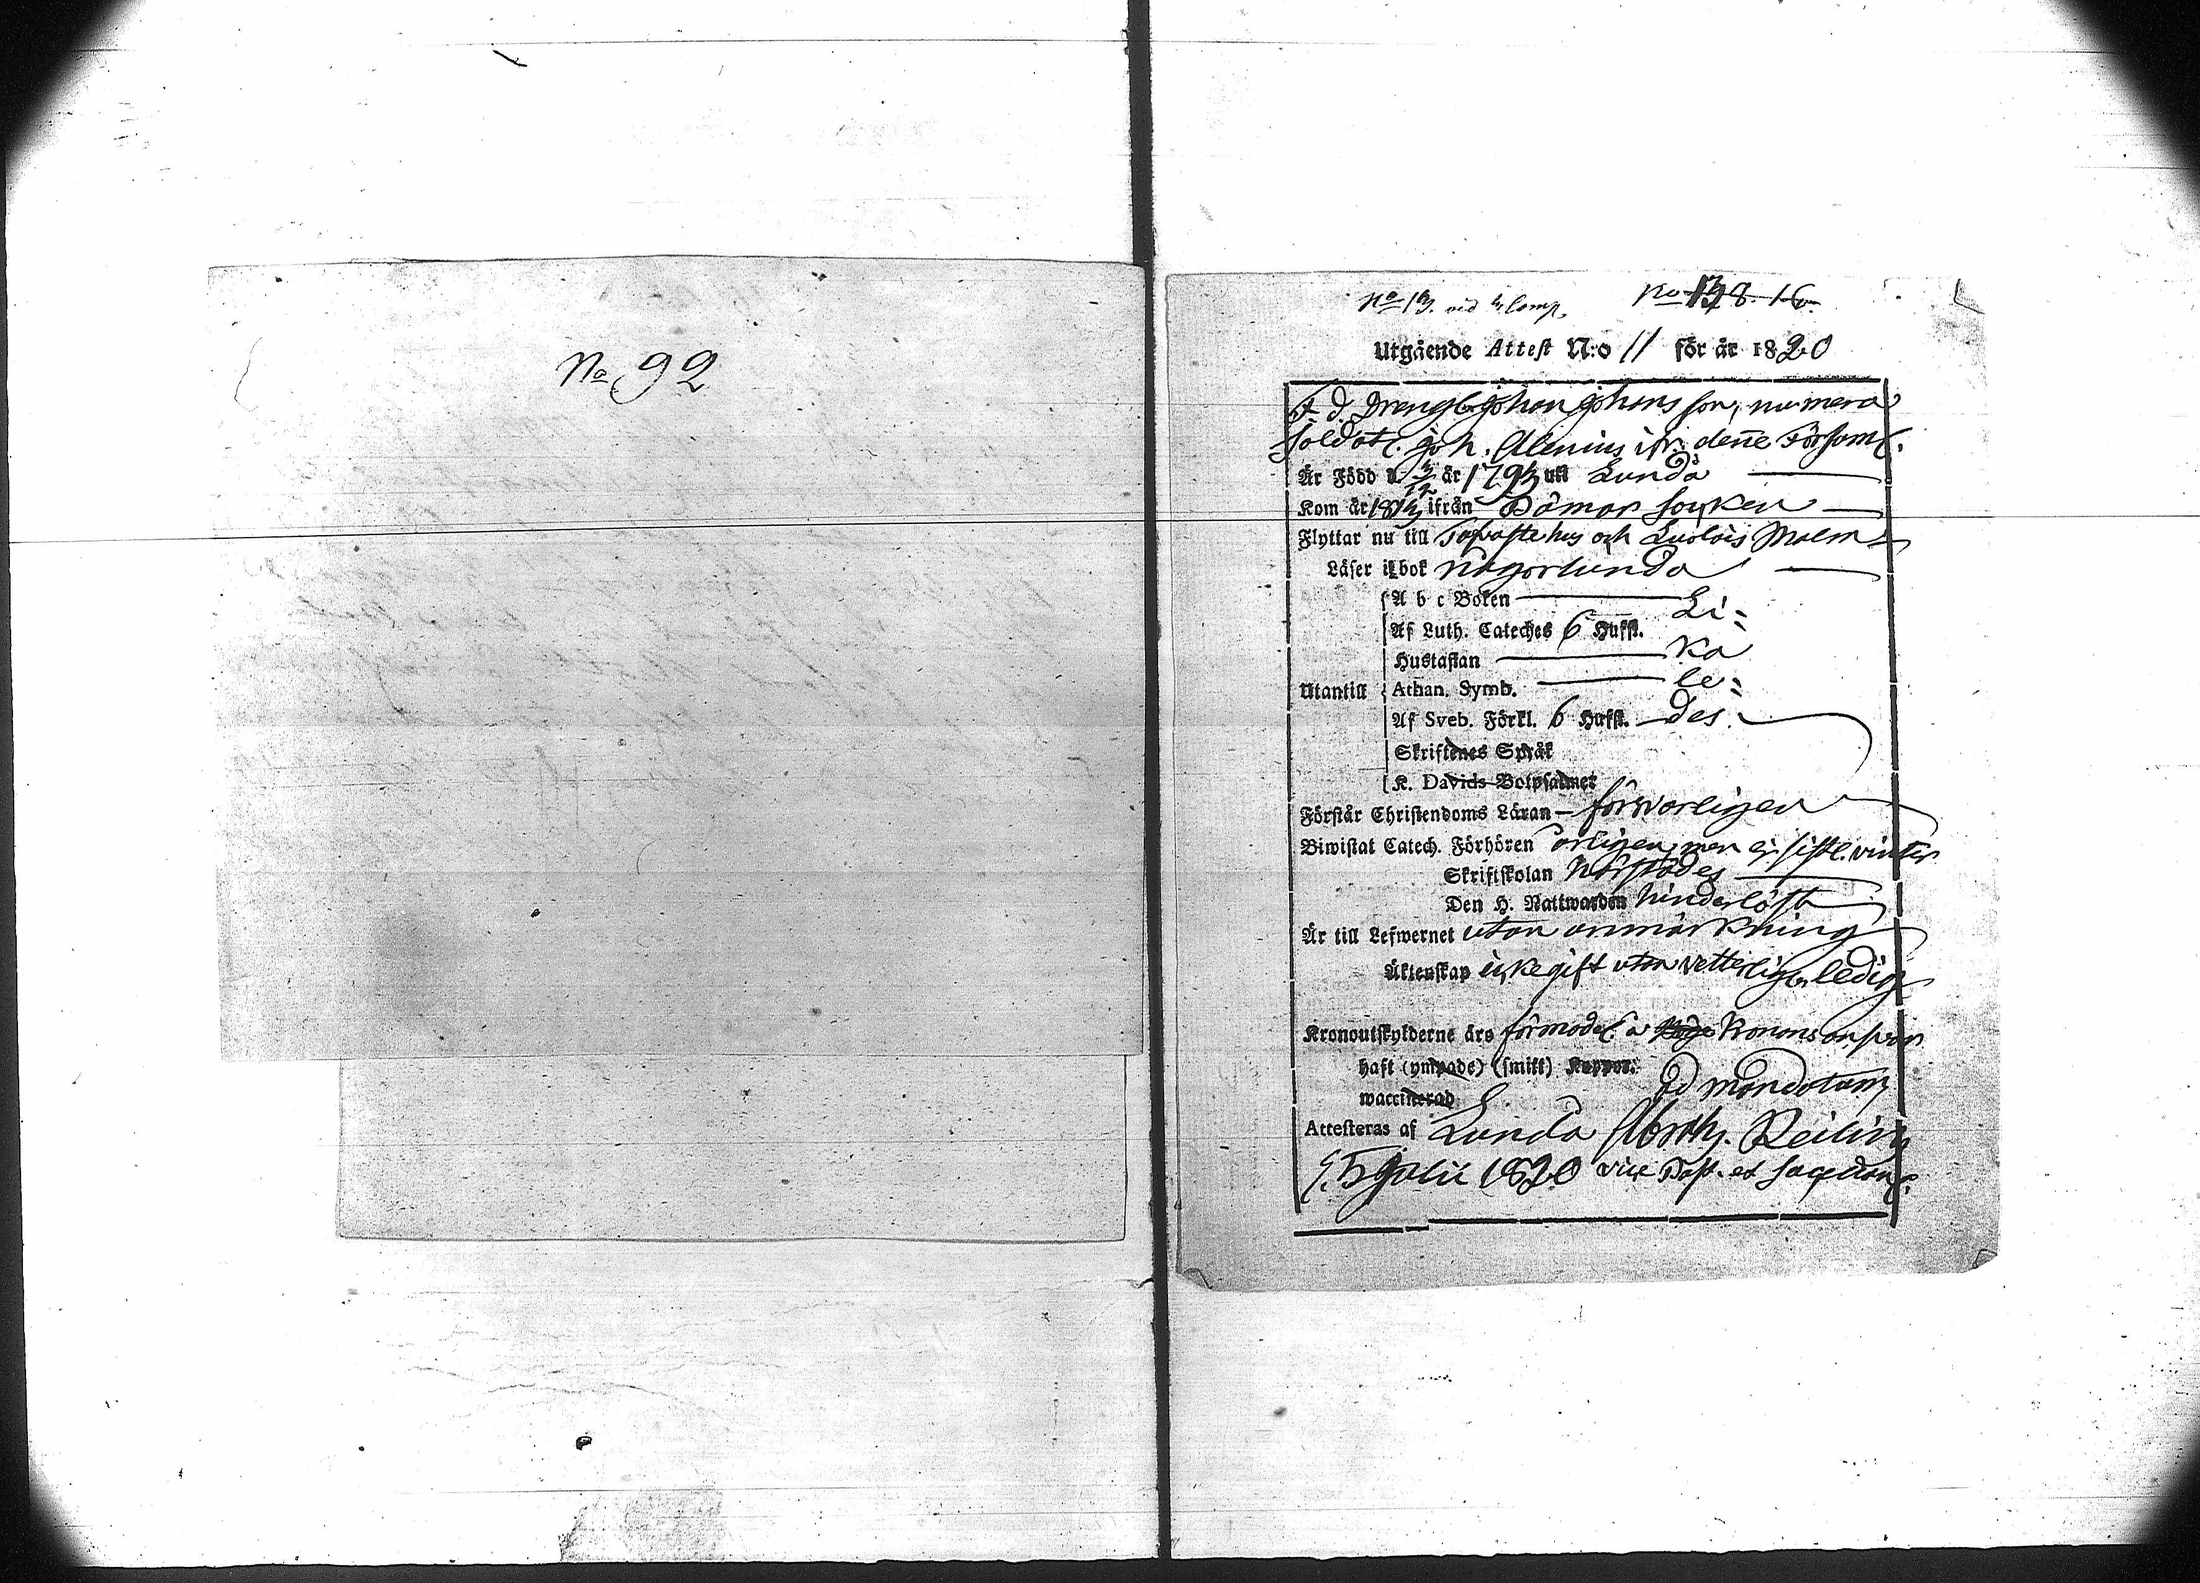 No 92
No 13. vid 4 Comp.
Utgående Attest N:o 11 för år 1820
F. d. Drengen Johan Johans son, numera
Soldat. Joh. Alenius ifr. denne Församl.
Är Född d. år 179 uti Lunda
Kom år 18 ifrån Dömar Socken
Flyttar nu till Tavastehus och Luolais Malm
Läser i bok någorlunda
A b c Boken Li-
Af Luth. Cateches 6 Hufst.
Hustaflan ka
Utantill Athan. Symb. le-
Af Sveb. Förkl. 6 Hufst. des.
Skriftenes Språk
K. Davids Botpsalmer
Förstår Christendoms Läran försvarligen
Biwistat Catech. Förhören årligen, men ej sistl. vinter
Skriftskolan
Den H. Nattwarden hinderlöst
Är till Lefwernet utan anmärkning
Äktenskap icke gift utan vetterligen ledig
Kronoutskylderne äro förmodel. a Kronans ansvar
haft (ympade) (smitt) Koppor.
waccinerad ad mandatum
Attesteras af Lunda Abrah. Reilin
d. 5 Julii 1820 vice Past. et Sacellan.